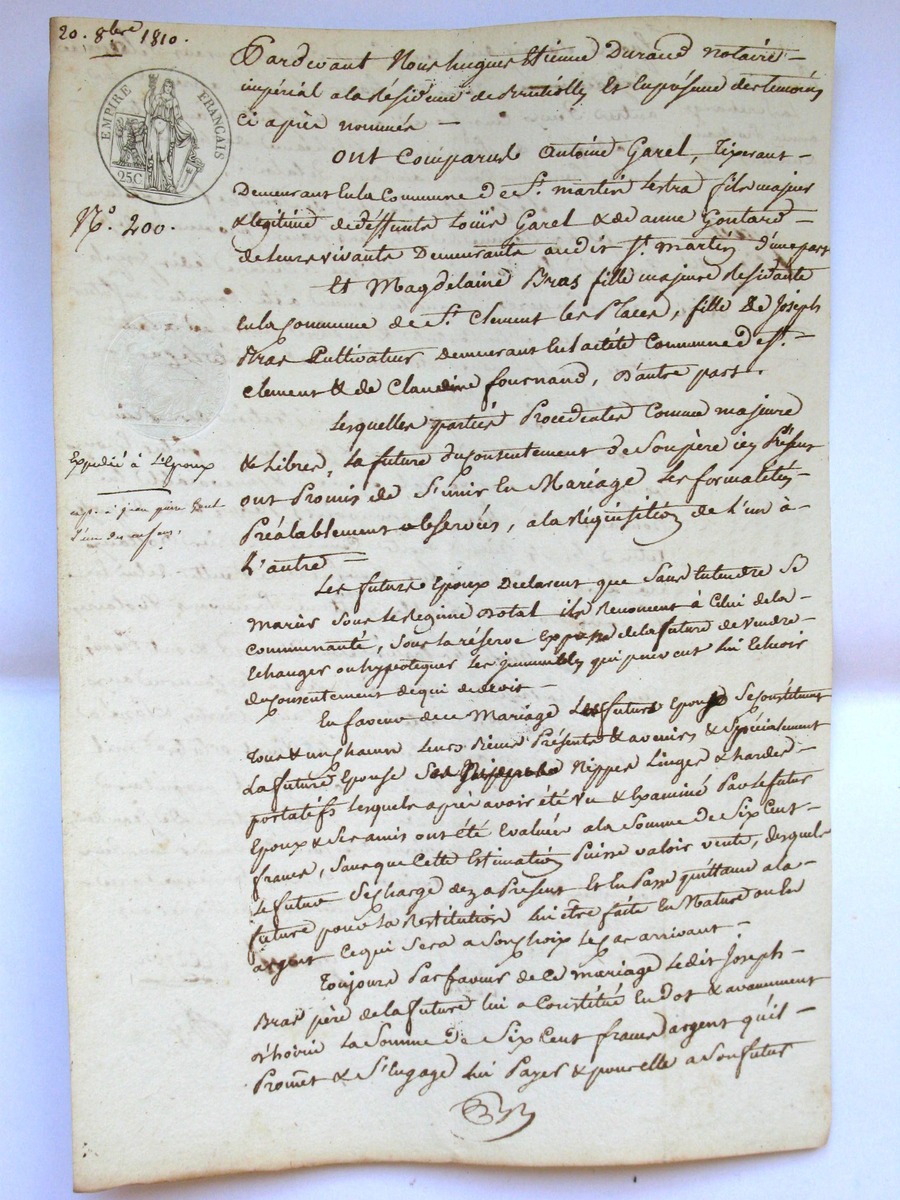 20. 8bre 1810.
EMPIRE FRANÇAIS
25 C
N.° 200.
Expedié à L'Epoux
copie à jean pierre
l'un des enfans.
Pardevant Nous hugues Etienne Durand notaire
impérial a la Résidence de et En présence des temoins
ci après nommés —
ont Comparus Antoine Garel, Tixerant —
Demeurant En la Commune de St. martin Lestra fils majeur
& legitime de deffunts Louis Garel & de anne Goutard —
de leurs vivants Demeurants au dit St. martin d'une part
Et Magdelaine Bras fille majeure Residante
En la Commune de St. Clement les Places, fille de Joseph
Bras Cultivateur demeurant En la ditte Commune de St.
Clement & de Claudine fournand, D'autre part.
Lesquelles parties Procedantes Comme majeures
& Libres, La future du Consentement de Son père icy Présent
ont Promis de S'unir En Mariage Les formalités
Préalablement observées, a la Réquisition de L'un à
L'autre —
Les futurs Epoux Declarent que Sans Entendre Se
Marier Sous le Regime Dotal ils Renoncent à Celui de la
Communauté, Sous la réserve Expresse de la future de vendre
Echanger ou hypotequer Les immeubles qui peuvent lui Echeoir
du Consentement de qui de droit —
En faveur de ce Mariage Les futurs Epoux Se Constituent
Tous & un chacun Leurs Biens Présents & avenirs & Spécialement
La future Epouse Ses Nippes Linges & hardes —
portatifs Lesquels après avoir été vu & Examiné Par Le futur
Epoux & Ses amis ont été Evalués a la Somme de Six Cent —
francs, Sans que Cette Estimation Puisse valoir vente, desquels
Le futur Se charge dez a Présent Et En Passe quittance a la —
future pour La Restitution Lui être faite En Nature ou En
argent Ce qui Sera a Son choix Le Cas arrivant —
Toujours Par faveur de Ce mariage Ledit Joseph —
Bras père de la future lui a Constitué En Dot & avancement
d'hoirie La Somme de Six Cent francs argent qu'il —
Promet & S'Engage Lui Payer & pour elle a Son futur